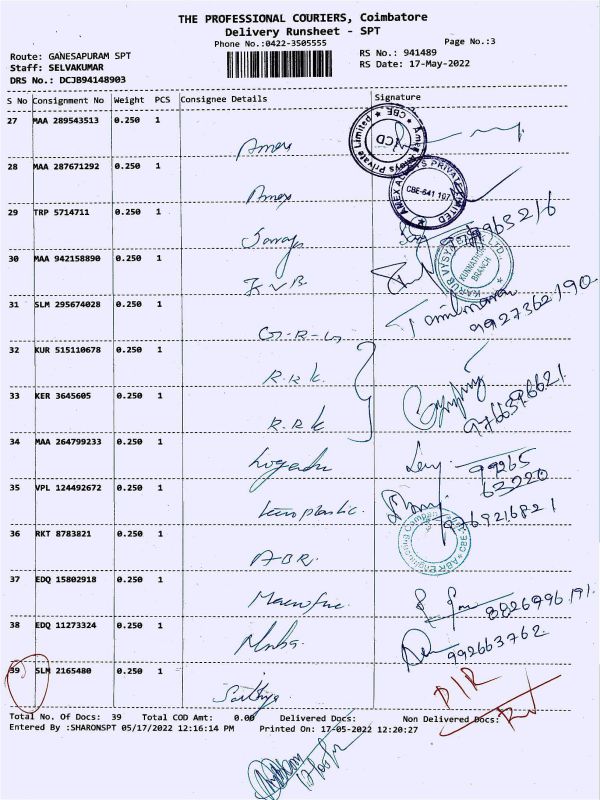 THE PROFESSIONAL COURIERS, Coimbatore
Delivery Runsheet - SPT
Phone No.:0422-3505555
Page No.:3
Route: GANESAPURAM SPT
RS No.: 941489
Staff: SELVAKUMAR
RS Date: 17-May-2022
DRS No.: DCJB94148903
S No Consignment No Weight PCS Consignee Details Signature
27 MAA 289543513 0.250 1
Amex
28 MAA 287671292 0.250 1
Amex
AMEX ALLOYS PRIVATE LIMITED
CBE-641 107
29 TRP 5714711 0.250 1
30 MAA 942158890 0.250 1
KVB
KARUR VYSYA
BRANCH
31 SLM 295674028 0.250 1
G-R-G
9927362190
32 KUR 515110678 0.250 1
R.R.K.
33 KER 3645605 0.250 1
R.R.K
34 MAA 264799233 0.250 1
99265
63220
35 VPL 124492672 0.250 1
9769216821
36 RKT 8783821 0.250 1
ABR.
37 EDQ 15802918 0.250 1
8826996191.
38 EDQ 11273324 0.250 1
992663762.
39 SLM 2165480 0.250 1
Sathya
DIR
Total No. Of Docs: 39 Total COD Amt: 0.00 Delivered Docs: Non Delivered Docs:
Entered By :SHARONSPT 05/17/2022 12:16:14 PM Printed On: 17-05-2022 12:20:27